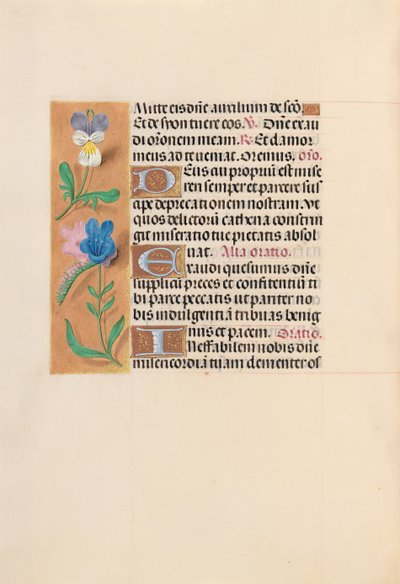 Mitte eis dn̄e auxilium de scō.
Et de syon tuere eos. V. Dn̄e exau
di or̄onem meam. R. Et clamor
meus ad te veniat. Oremus. Or̄o.
Deus cui proprium est mise
reri semper et parcere sus
cipe deprecationem nostram. Vt
quos delictorū cathena constrin
git miseratio tue pietatis absol
uat. Alia oratio.
Exaudi quesumus dn̄e
supplicū preces et confitentiū ti
bi parce peccatis ut pariter no
bis indulgentiā tribuas benig
nus et pacem. Oratio.
Ineffabilem nobis dn̄e
misericordiā tuam clementer os